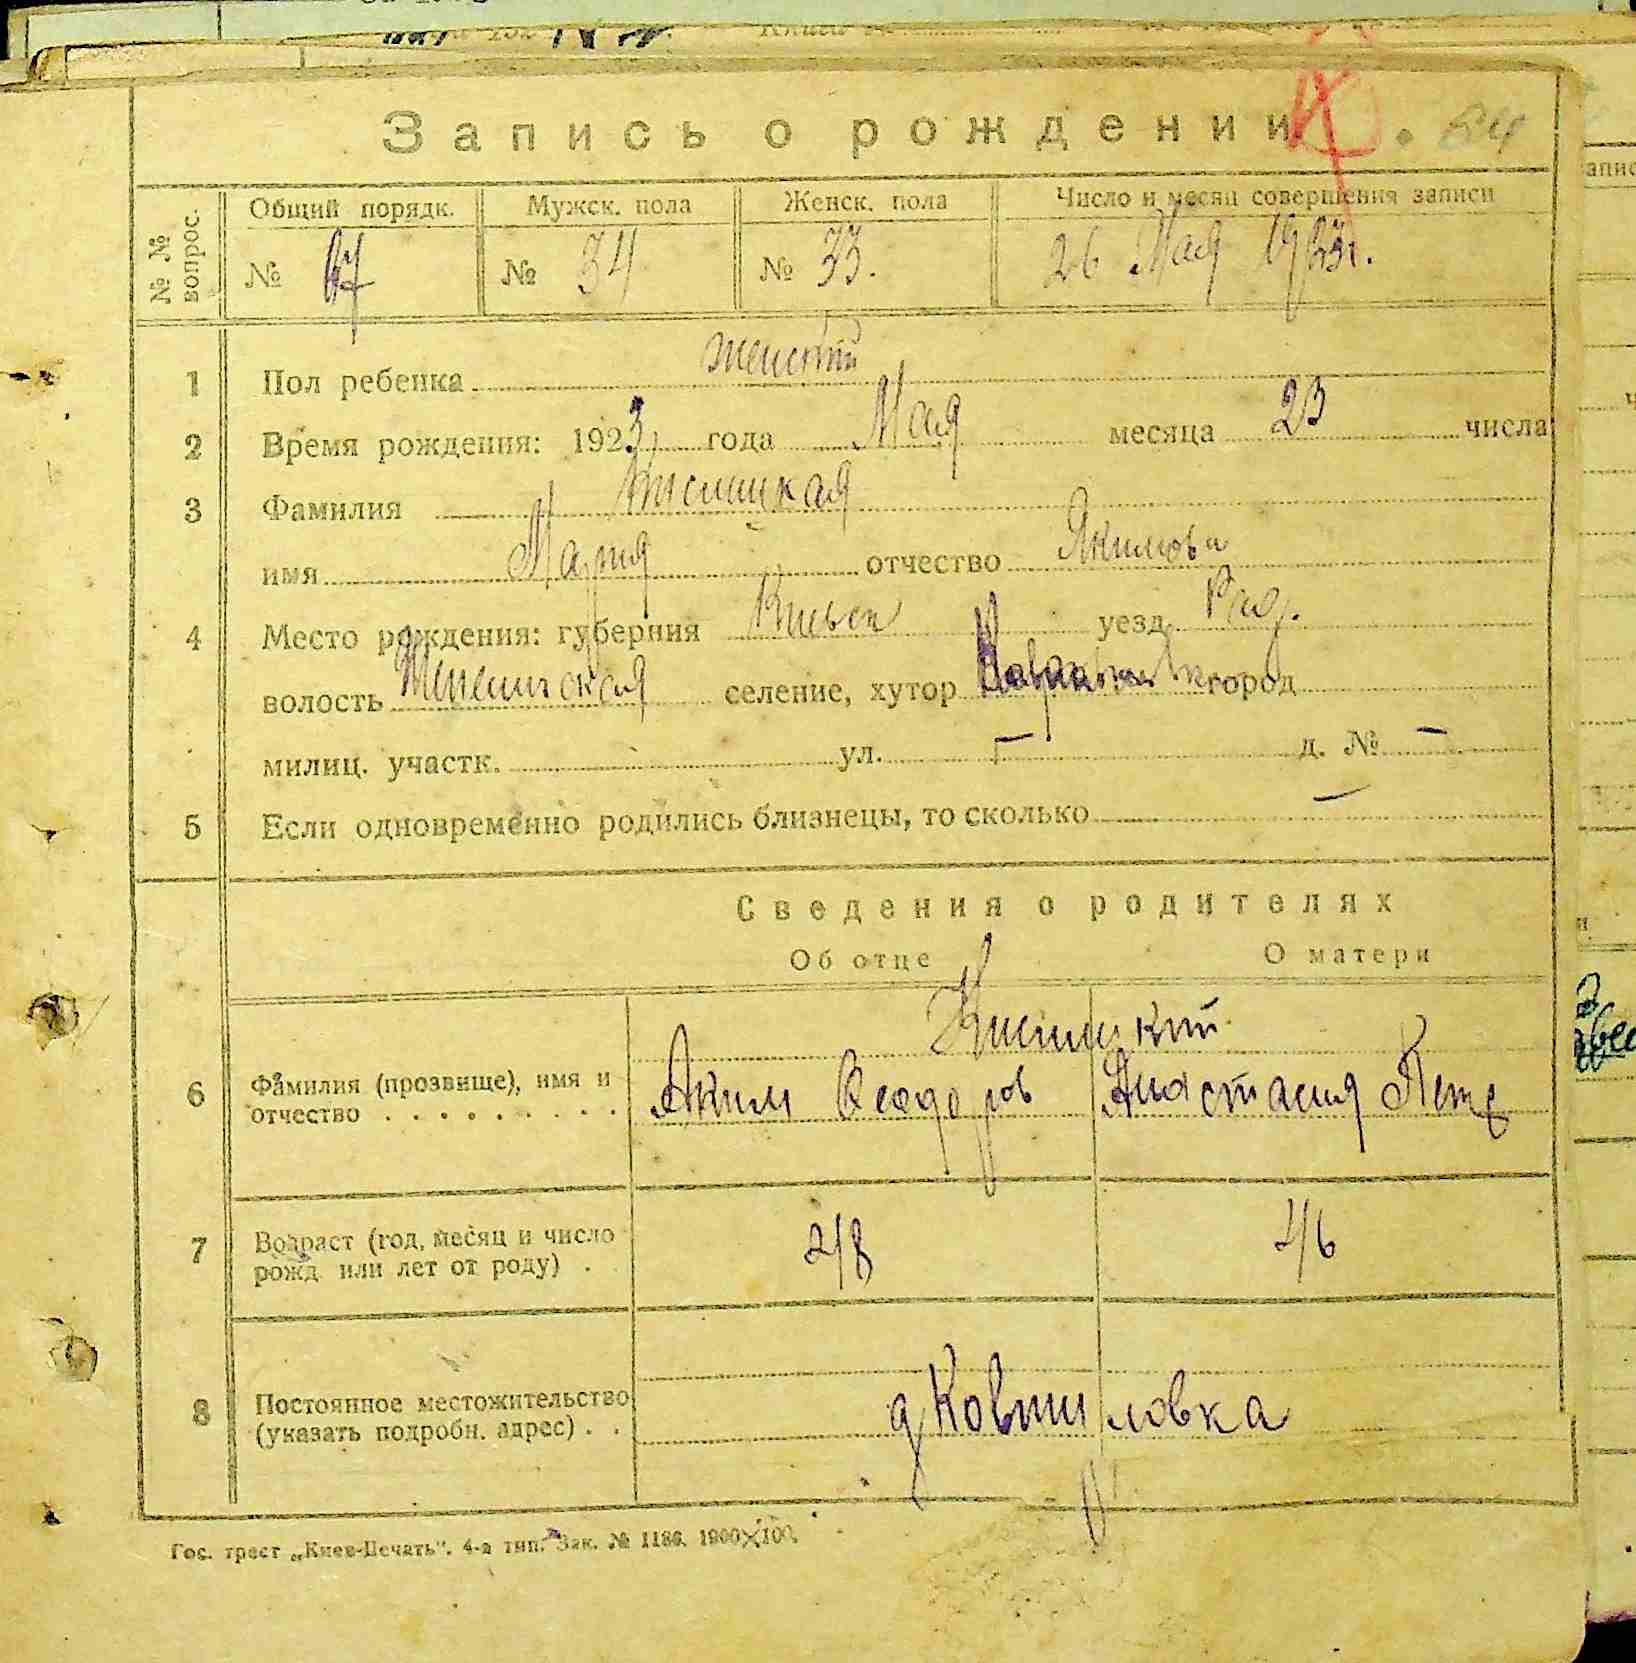 Запись о рождении. 64
№№ вопрос.
Общий порядк. Мужск. пола Женск. пола Число и месяц совершения записи
№ 67 № 34 № 33. 26 Мая 1923г.
1 Пол ребенка женский
2 Время рождения: 1923 года Мая месяца 23 числа
3 Фамилия
имя Мария отчество Якимова
4 Место рождения: губерния Киевск уезд Рад.
волость селение, хутор город
милиц. участк. ул. — д. № —
5 Если одновременно родились близнецы, то сколько —
Сведения о родителях
Об отце О матери
6 Фамилия (прозвище), имя и отчество
Аким Феодоров Анастасия Петр
7 Возраст (год, месяц и число рожд или лет от роду) .
28 26
8 Постоянное местожительство (указать подробн. адрес) . .
д Ковшиловка
Гос. трест „Киев-Печать". 4-а тип. Зак. № 1186. 1900×100.